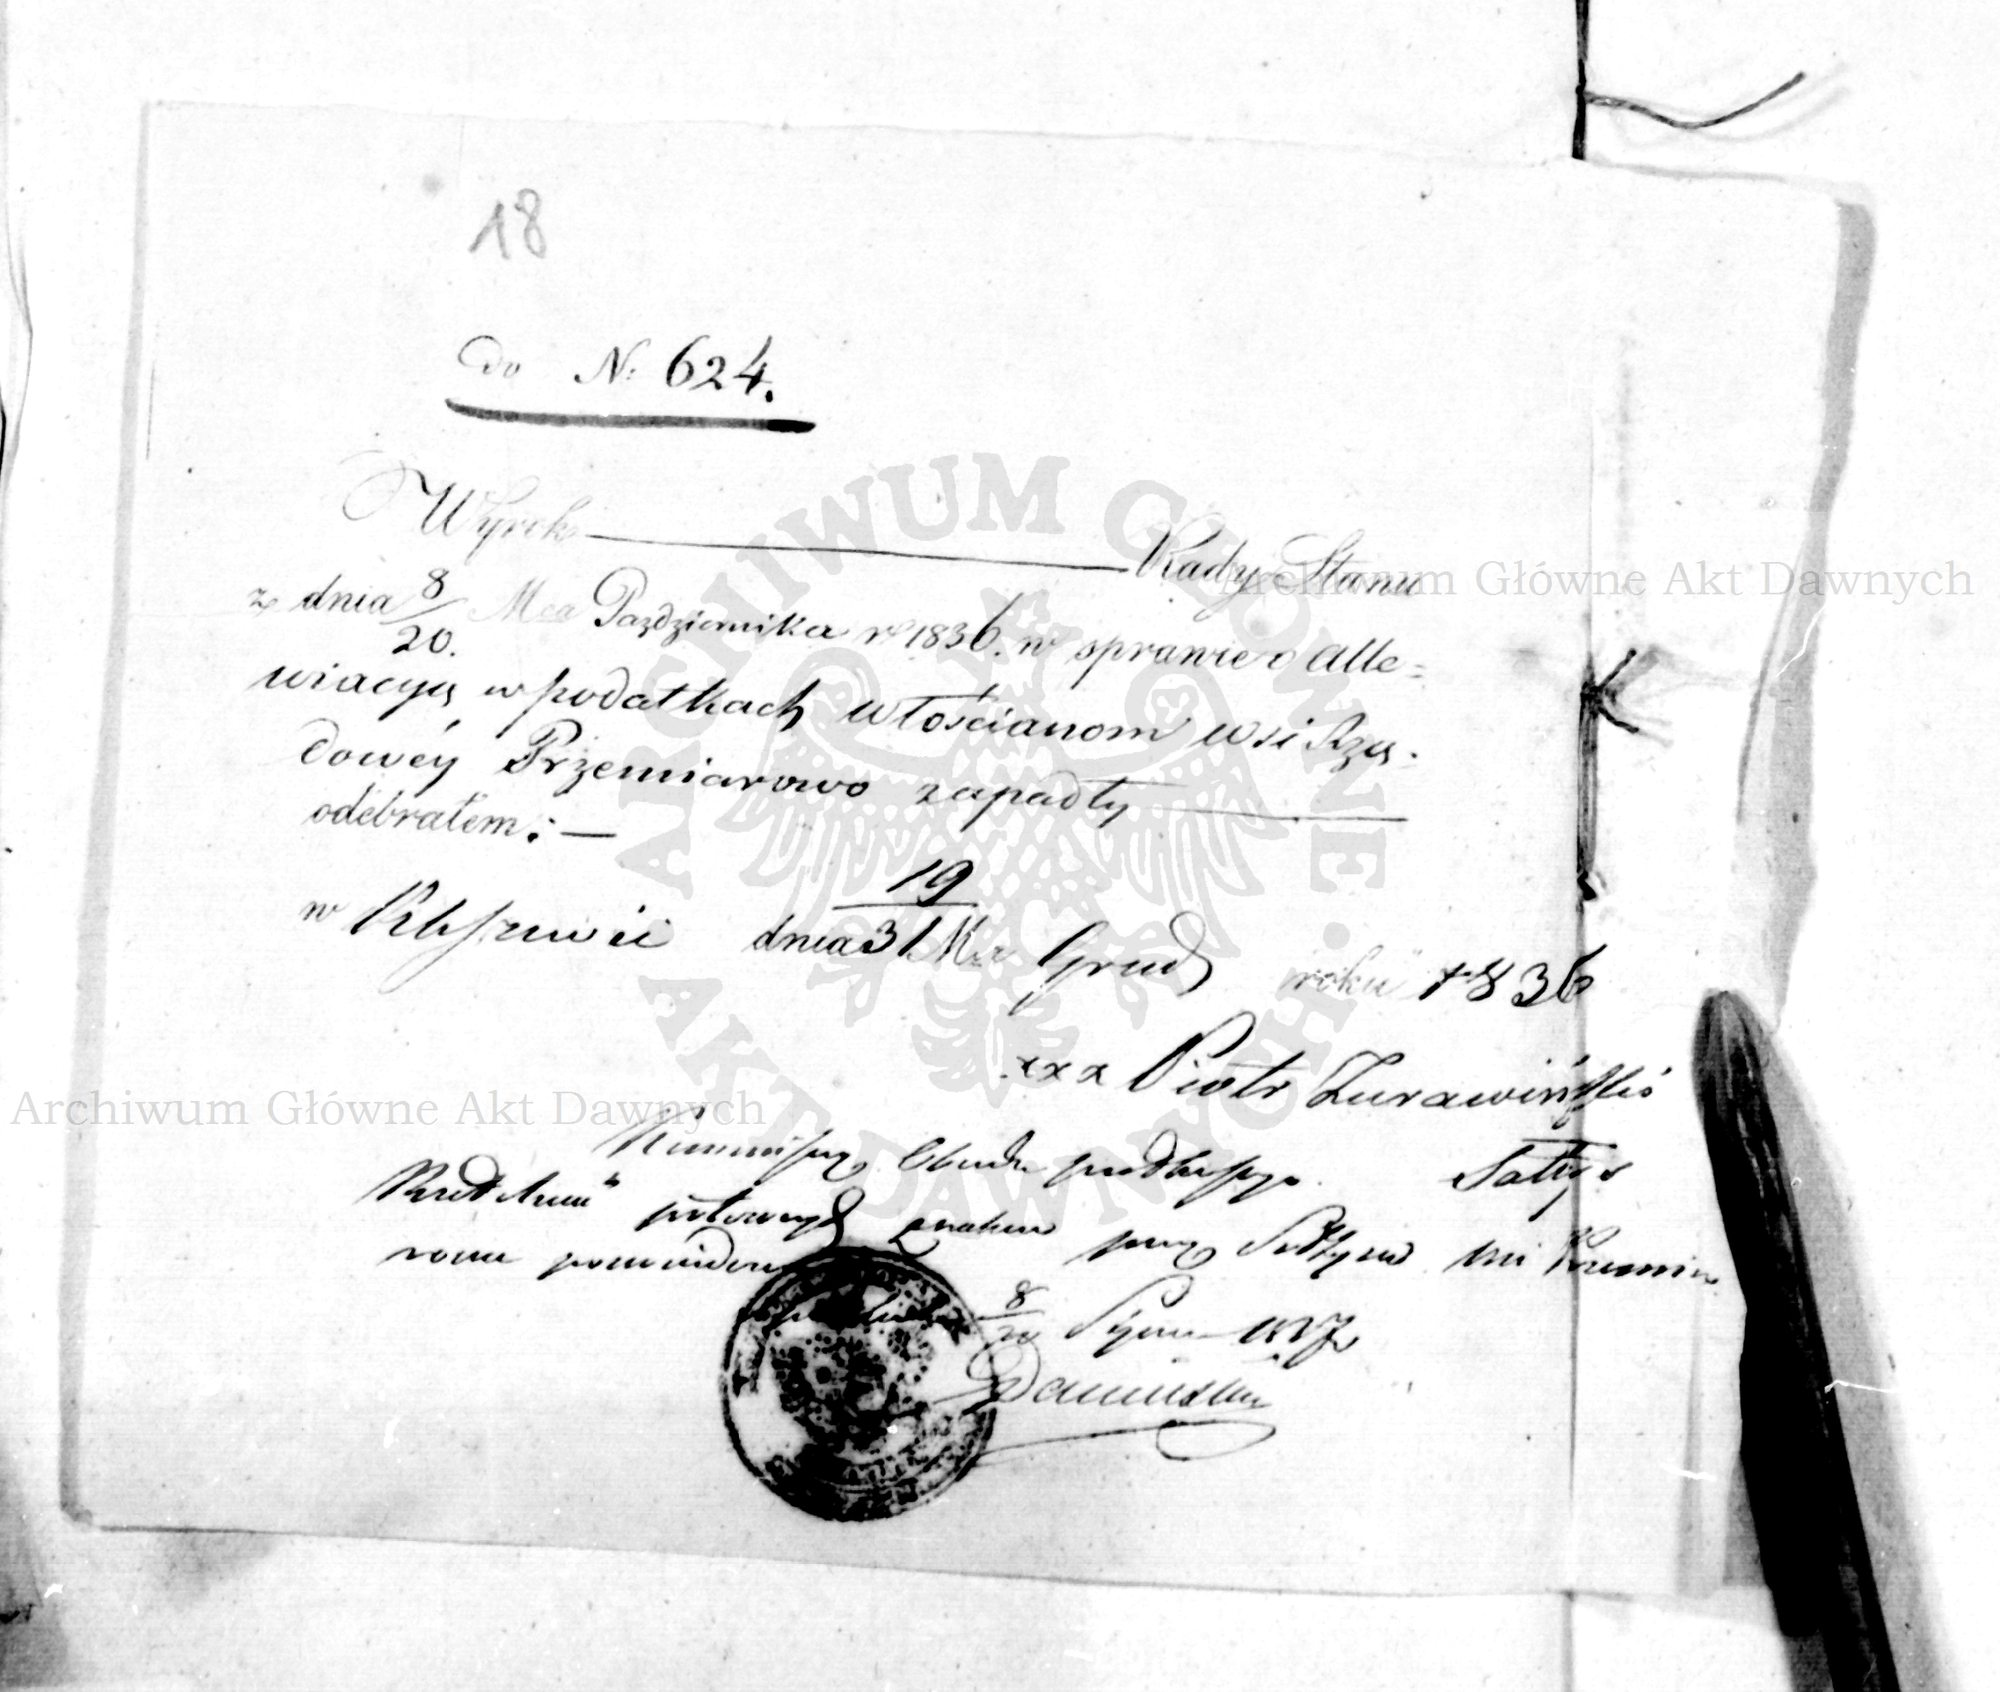 18
do N: 624.
Wyrok Rady Stanu
z dnia 8/20. Mca Pazdziernika r 1836. w sprawie o Alle=
wiacyą w podatkach włościanom wsi Rzą-
dowéy Przemiarowo zapadły
odebrałem: —
w dnia 19/31 Mca Grud roku 1836
xxx Piotr Zurawiński
Kommissarz Obwodu Sołtys
znaków przez Sołtysa wsi Przemia-
rowa
8/20 1837
ARCHIWUM GŁÓWNE AKT DAWNYCH
Archiwum Główne Akt Dawnych
Archiwum Główne Akt Dawnych